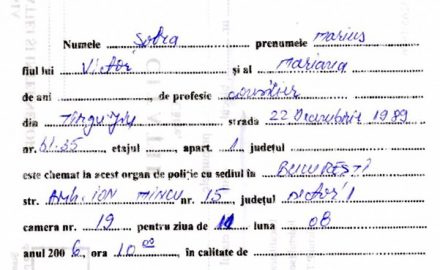 Numele Șotra prenumele Marius
fiul lui Victor și al Mariana
de ani, de profesie consilier
din Târgu Jiu strada 22 Decembrie 1989
nr. 61.35, etajul, apart. 1, județul
este chemat la acest organ de poliție cu sediul în BUCUREȘTI
str. Arh. ION MINCU nr. 15, județul sector 1
camera nr. 19 pentru ziua de 11 luna 08
anul 200 6, ora 10 00 în calitate de